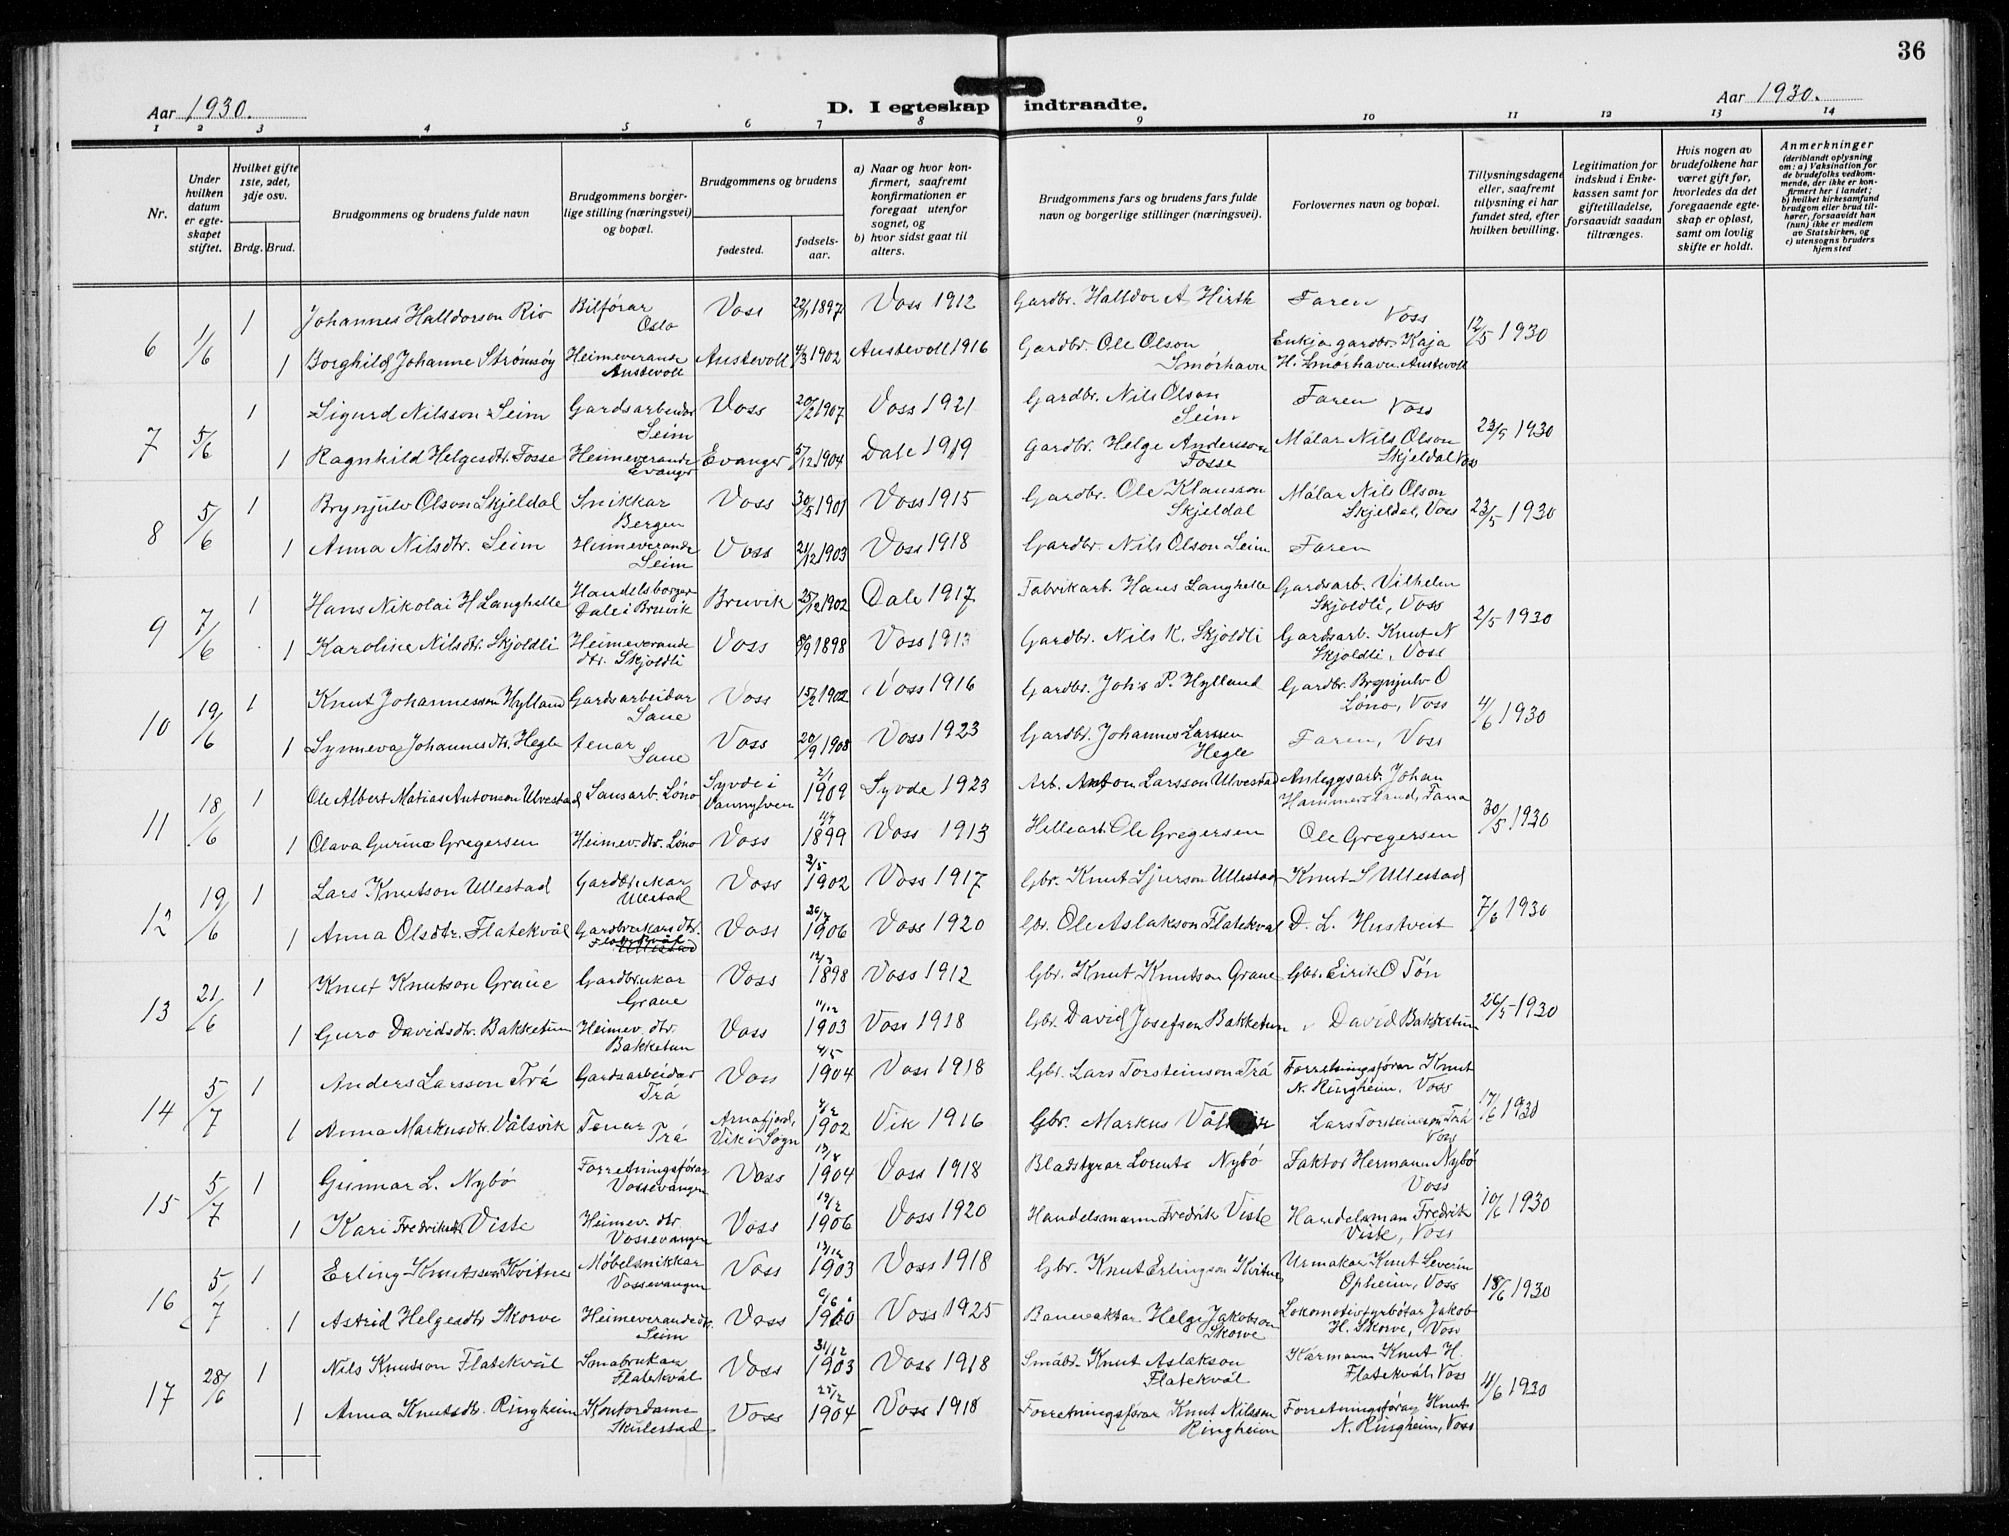 36
Aar 1930.
D. I egteskap indtraadte.
Aar 1930.
1 2 3 4 5 6 7 8 9 10 11 12 13 14
Nr.
Under hvilken datum er egteskapet stiftet.
Hvilket gifte 1ste, 2det, 3dje osv.
Brdg. Brud.
Brudgommens og brudens fulde navn
Brudgommens borgerlige stilling (næringsvei) og bopæl.
Brudgommens og brudens
fødested.
fødselsaar.
a) Naar og hvor konfirmert, saafremt konfirmationen er foregaat utenfor sognet, og
b) hvor sidst gaat til alters.
Brudgommens fars og brudens fars fulde navn og borgerlige stillinger (næringsvei).
Forlovernes navn og bopæl.
Tillysningsdagene eller, saafremt tillysning ei har fundet sted, efter hvilken bevilling.
Legitimation for indskud i Enkekassen samt for giftetilladelse, forsaavidt saadan tiltrænges.
Hvis nogen av brudefolkene har været gift før, hvorledes da det foregaaende egteskap er opløst, samt om lovlig skifte er holdt.
Anmerkninger
(deriblandt oplysning om: a) Vaksination for de brudefolks vedkommende, der ikke er konfirmert her i landet; b) hvilket kirkesamfund brudgom eller brud tilhører, forsaavidt han (hun) ikke er medlem av Statskirken, og c) utensogns bruders hjemsted
6 1/6 1 Johannes Halldorson Rio Bilførar Oslo Voss 22/1 1897 Voss 1912 Gardbr. Halldor A. Hirth Faren Voss 12/5 1930
1 Borghild Johanne Strømsøy Heimeverande Austevoll Austevoll 4/3 1902 Austevoll 1916 Gardbr. Ole Olson Smørhavn Enkja gardbr. Kaja H. Smørhavn, Austevoll
7 5/6 1 Sigurd Nilsson Seim Gardsarbeidar Seim Voss 20/2 1907 Voss 1921 Gardbr. Nils Olson Seim Faren Voss 23/5 1930
1 Ragnhild Helgesdtr. Fosse Heimeverande Evanger Evanger 5/12 1904 Dale 1919 Gardbr. Helge Andersson Fosse Målar Nils Olson Skjeldal Voss
8 5/6 1 Brynjulv Olson Skjeldal Snikkar Bergen Voss 30/5 1901 Voss 1915 Gardbr. Ole Klausson Skjeldal Målar Nils Olson Skjeldal, Voss 23/5 1930
1 Anna Nilsdtr. Seim Heimeverande Seim Voss 21/12 1903 Voss 1918 Gardbr. Nils Olson Seim Faren
9 7/6 1 Hans Nikolai H Langhelle Handelsborger Dale i Bruvik Bruvik 25/12 1902 Dale 1917 Fabrikarb. Hans Langhelle Gardsarb. Vilhelm Skjoldli, Voss 2/5 1930
1 Karoline Nilsdtr. Skjoldli Heimeverande dtr. Skjoldli Voss 8/9 1898 Voss 1913 Gardbr. Nils K. Skjoldli Gardsarb. Knut N Skjoldli, Voss
10 19/6 1 Knut Johannesson Hylland Gardsarbeidar Saue Voss 15/2 1902 Voss 1916 Gardbr. Johs P. Hylland Gardbr. Brynjulv O Løno, Voss 4/6 1930
1 Synneva Johannesdtr. Hegle tenar Saue Voss 20/9 1908 Voss 1923 Gardbr. Johannes Larssen Hegle Faren, Voss
11 18/6 1 Ole Albert Matias Antonson Ulvestad Sausarb. Lóno Syvde i Vannylven 2/1 1909 Syvde 1923 Arb. Anton Larsson Ulvestad Anleggsarb. Johan Hammersland, Fana 30/5 1930
1 Olava Gurine Gregersen Heimev. dtr. Lóno Voss 1899 Voss 1913 Hellearb. Ole Gregersen Ole Gregersen
12 19/6 1 Lars Knutson Ullestad Gardbrukar Ullestad Voss 2/5 1902 Voss 1917 Gbr. Knut Sjurson Ullestad Knut S Ullestad 7/6 1930
1 Anna Olsdtr. Flatekvål Gardbrukars dtr. Flatekvål Voss 1906 Voss 1920 Gbr. Ole Aslakson Flatekvål D. L. Hustveit
13 21/6 1 Knut Knutson Graue Gardbrukar Graue Voss 1898 Voss 1912 Gbr. Knut Knutson Graue Gbr. Eirik O Tøn 26/5 1930
1 Guro Davidsdtr. Bakketun Heimev. dtr. Bakketun Voss 11/12 1903 Voss 1918 Gbr. David Josefson Bakketun David Bakketun
14 5/7 1 Anders Larsson Trå Gardsarbeidar Trå Voss 4/5 1904 Voss 1918 Gbr. Lars Torsteinson Trå Forretningsfórar Knut N. Ringheim, Voss 17/6 1930
1 Anna Markusdtr. Vålsvik Tenar Trå Arnafjord, Vik i Sogn 4/2 1902 Vik 1916 Gbr. Markus Lars Torsteinson Trå Voss
15 5/7 1 Gunnar L. Nybó Forretningsfórar Vossevangen Voss 13/8 1904 Voss 1918 Bladstyrar Lorents Nybó Faktor Hermann Nybó Voss 10/6 1930
1 Kari Fredriksdtr. Viste Heimev. dtr. Vossevangen Voss 19/2 1906 Voss 1920 Handelsmann Fredrik Viste Handelsman Fredrik Viste, Voss
16 5/7 1 Erling Knutsson Kvitne Móbelsnikkar Vossevangen Voss 13/12 1903 Voss 1918 Gbr. Knut Erlingson Kvitne Urmakar Knut Severin Opheim, Voss 18/6 1930
1 Astrid Helgesdtr Skorve Heimeverande dtr. Seim Voss 6/6 1910 Voss 1925 Banevaktar Helge Jakobson Skorve Lokomotivfyrbótar Jakob H. Skorve, Voss
17 28/6 1 Nils Knutson Flatekvål Småbrukar Flatekvål Voss 31/12 1903 Voss 1918 Småbr. Knut Aslakson Flatekvål Kårmann Knut H. Flatekvål, Voss 11/6 1930
1 Anna Knutsdtr. Ringheim Kontordame Skulestad Voss 25/2 1904 Voss 1918 Forretningsfórar Knut Nilsson Ringheim Forretningsfórar Knut N. Ringheim, Voss